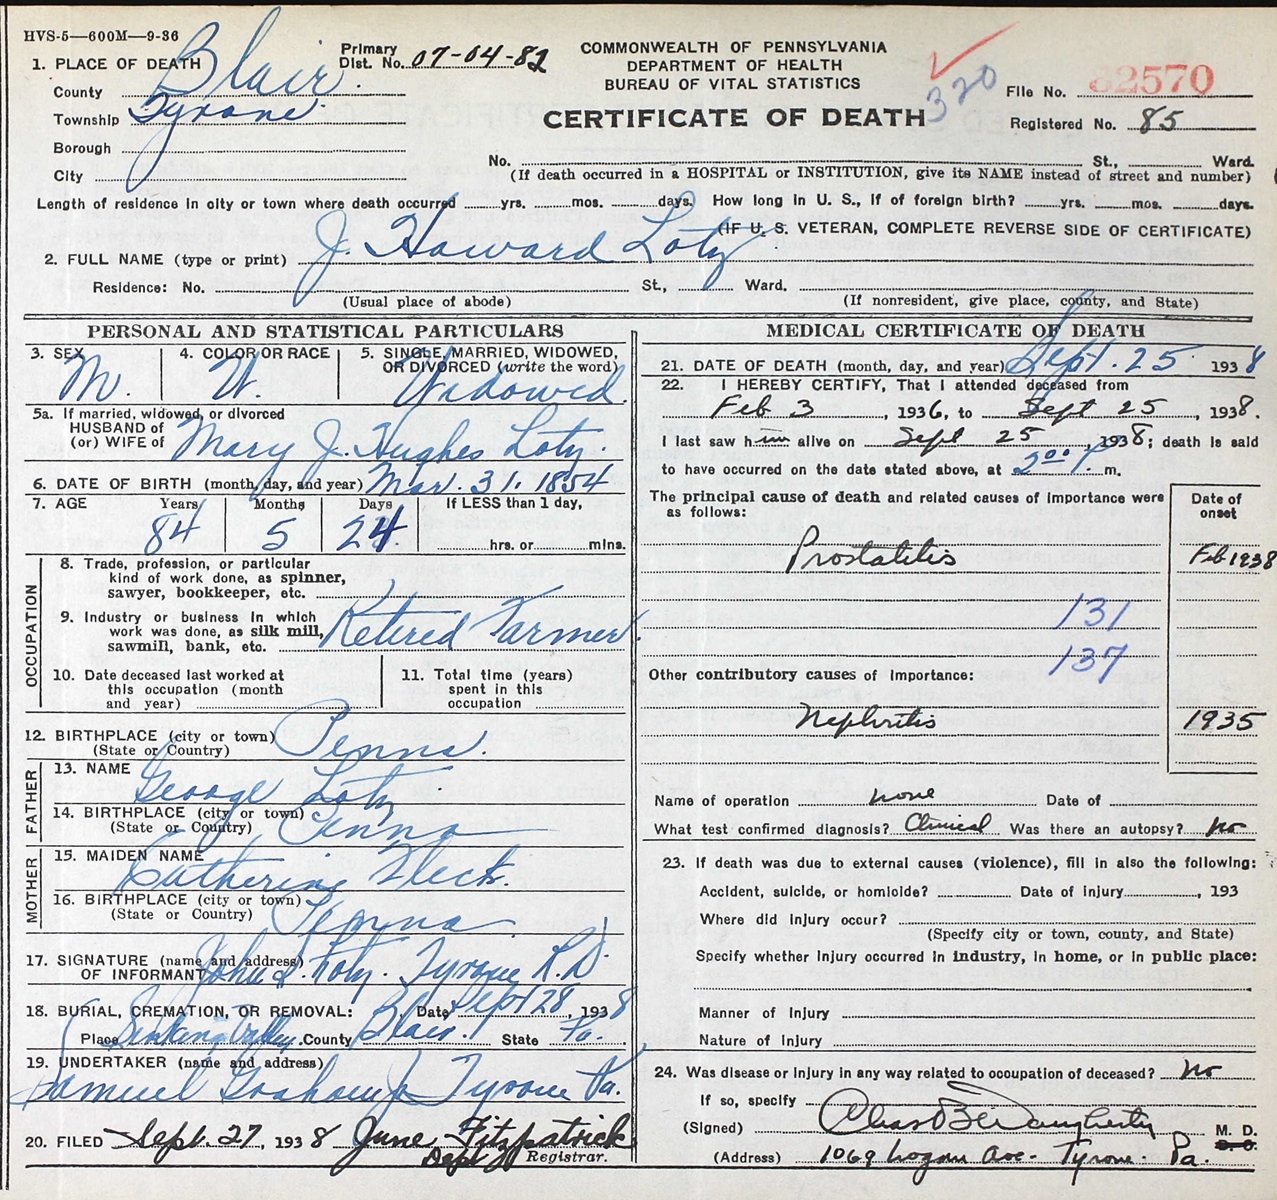 HVS-5—600M—9-36
COMMONWEALTH OF PENNSYLVANIA
DEPARTMENT OF HEALTH
BUREAU OF VITAL STATISTICS
CERTIFICATE OF DEATH
320
File No. 82570
Registered No. 85
Primary Dist. No. 07-04-82
1. PLACE OF DEATH
County Blair
Township Tyrone
Borough
City
No. St., Ward.
(If death occurred in a HOSPITAL or INSTITUTION, give its NAME instead of street and number)
Length of residence in city or town where death occurred yrs. mos. days. How long in U. S., if of foreign birth? yrs. mos. days.
(IF U. S. VETERAN, COMPLETE REVERSE SIDE OF CERTIFICATE)
2. FULL NAME (type or print) J. Howard Lotz
Residence: No. St., Ward.
(Usual place of abode) (If nonresident, give place, county, and State)
PERSONAL AND STATISTICAL PARTICULARS
3. SEX M. 4. COLOR OR RACE W. 5. SINGLE, MARRIED, WIDOWED, OR DIVORCED (write the word) Widowed.
5a. If married, widowed, or divorced
HUSBAND of
(or) WIFE of Mary J. Hughes Lotz.
6. DATE OF BIRTH (month, day, and year) Mar. 31. 1854
7. AGE Years 84 Months 5 Days 24 If LESS than 1 day, hrs. or mins.
OCCUPATION
8. Trade, profession, or particular
kind of work done, as spinner,
sawyer, bookkeeper, etc.
9. Industry or business in which
work was done, as silk mill,
sawmill, bank, etc. Retired Farmer.
10. Date deceased last worked at
this occupation (month
and year)
11. Total time (years)
spent in this
occupation
12. BIRTHPLACE (city or town)
(State or Country) Penna.
FATHER
13. NAME George Lotz
14. BIRTHPLACE (city or town)
(State or Country) Penna
MOTHER
15. MAIDEN NAME Catherine Fleck.
16. BIRTHPLACE (city or town)
(State or Country) Penna
17. SIGNATURE (name and address)
OF INFORMANT John Lotz. Tyrone R.D.
18. BURIAL, CREMATION, OR REMOVAL: Date Sept 28, 1938
Place Sinking Valley. County Blair. State Pa.
19. UNDERTAKER (name and address)
Samuel Graham Jr Tyrone Pa.
20. FILED Sept. 27, 1938 June Fitzpatrick
Dept Registrar.
MEDICAL CERTIFICATE OF DEATH
21. DATE OF DEATH (month, day, and year) Sept. 25 1938
22. I HEREBY CERTIFY, That I attended deceased from
Feb 3, 1936, to Sept 25, 1938.
I last saw him alive on Sept 25, 1938; death is said
to have occurred on the date stated above, at 2 00 P. m.
The principal cause of death and related causes of importance were
as follows:
Date of
onset
Prostatitis Feb 1938
131
137
Other contributory causes of importance:
Nephritis 1935
Name of operation none Date of
What test confirmed diagnosis? Clinical Was there an autopsy? no
23. If death was due to external causes (violence), fill in also the following:
Accident, suicide, or homicide? Date of injury, 193
Where did injury occur?
(Specify city or town, county, and State)
Specify whether injury occurred in industry, in home, or in public place:
Manner of injury
Nature of injury
24. Was disease or injury in any way related to occupation of deceased? No
If so, specify
(Signed) Chas B Daugherty M. D.
D. O.
(Address) 1069 Logan Ave. Tyrone. Pa.